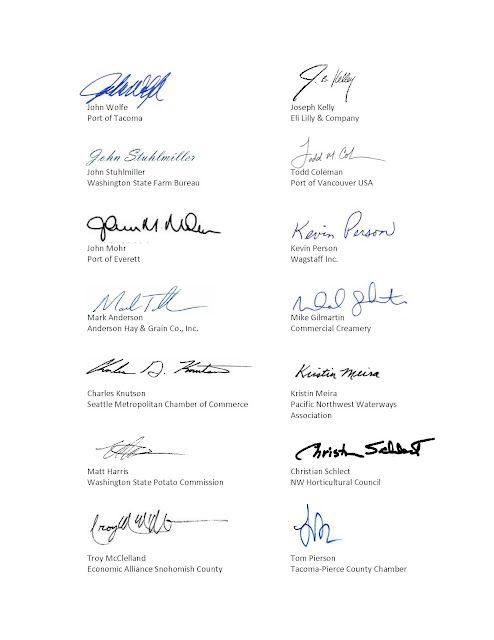 John Wolfe
Port of Tacoma
J. B. Kelly
Joseph Kelly
Eli Lilly & Company
John Stuhlmiller
John Stuhlmiller
Washington State Farm Bureau
Todd M Col
Todd Coleman
Port of Vancouver USA
John Mohr
Port of Everett
Kevin Person
Kevin Person
Wagstaff Inc.
Mark Anderson
Anderson Hay & Grain Co., Inc.
Mike Gilmartin
Commercial Creamery
Charles D. Knutson
Charles Knutson
Seattle Metropolitan Chamber of Commerce
Kristin Meira
Kristin Meira
Pacific Northwest Waterways
Association
Matt Harris
Washington State Potato Commission
Christian Schlect
Christian Schlect
NW Horticultural Council
Troy McClelland
Economic Alliance Snohomish County
Tom Pierson
Tacoma-Pierce County Chamber